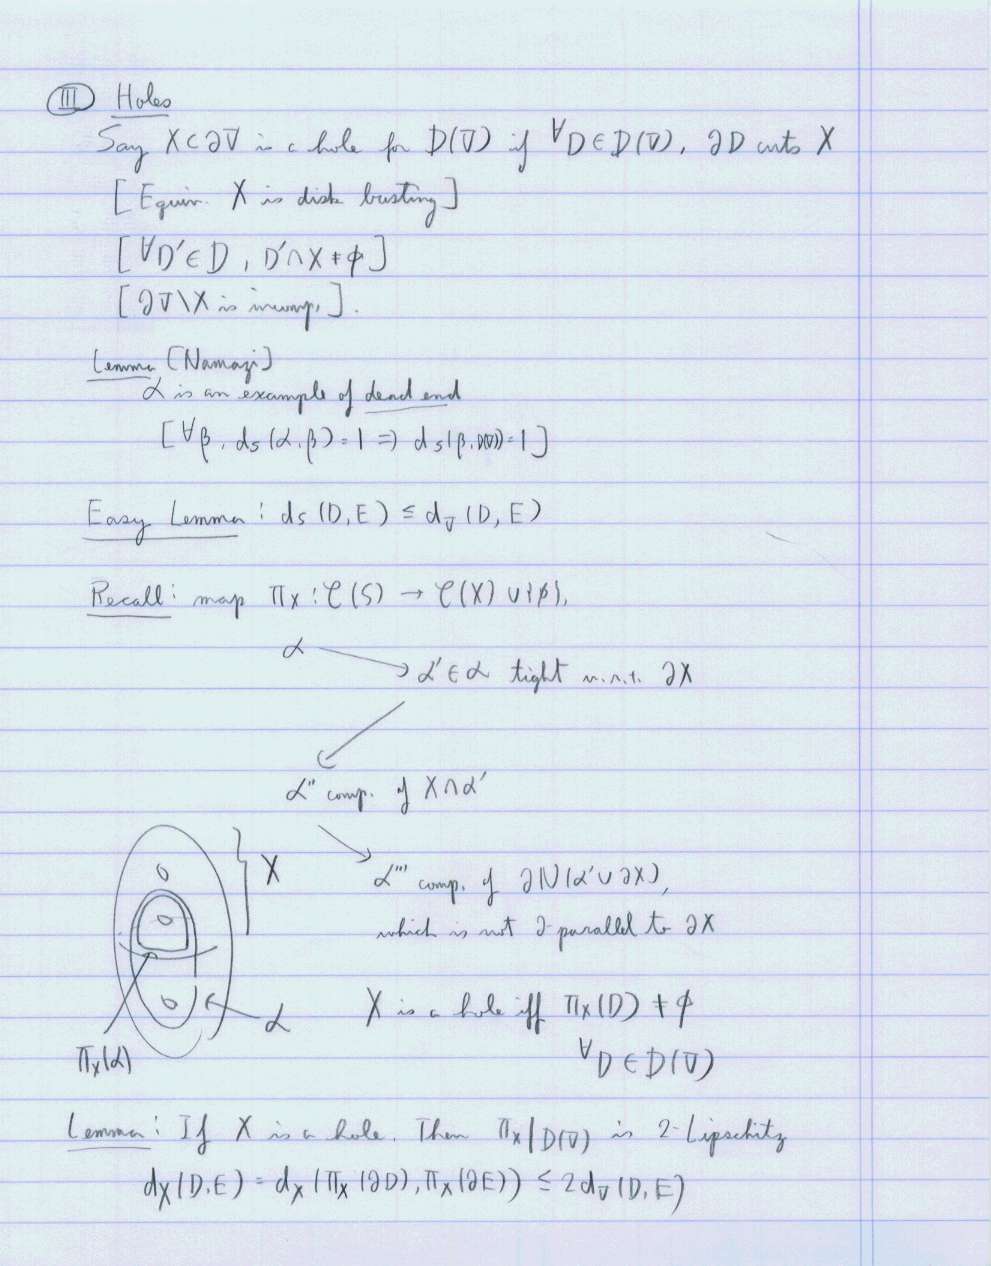 III Holes
Say X ⊂ ∂V is a hole for D(V) if ∀D∈D(V), ∂D cuts X
[Equiv. X is disk busting]
[∀D'∈D, D'∩X≠φ]
[∂V\X is incomp.].
Lemma [Namazi]
α is an example of dead end
[∀β, ds(α,β)=1 ⇒ ds(β,D(V))=1]
Easy Lemma: ds(D,E) ≤ dV(D,E)
Recall: map πX : C(S) → C(X) ∪ {φ},
α
α' ∈ α tight w.r.t. ∂X
α'' comp. of X∩α'
X
α''' comp. of ∂N(α'∪∂X),
which is not ∂-parallel to ∂X
X is a hole iff πX(D) ≠ φ
α
πX(α)
∀D∈D(V)
Lemma: If X is a hole. Then πX|D(V) is 2-Lipschitz
dX(D,E) = dX(πX(∂D), πX(∂E)) ≤ 2dV(D,E)